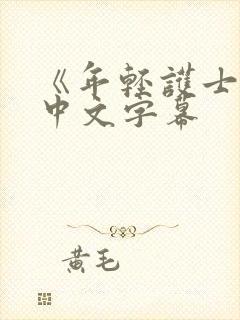 《年轻護士
中文字幕
黄毛